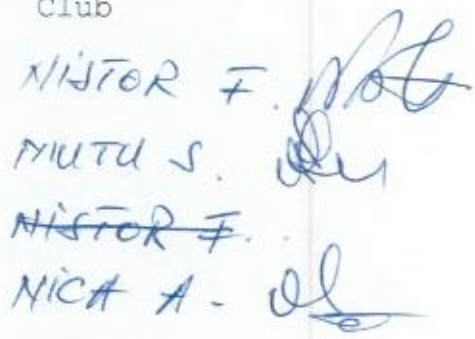 Club
NISTOR F.
MUTU S.
NISTOR F.
NICA A.